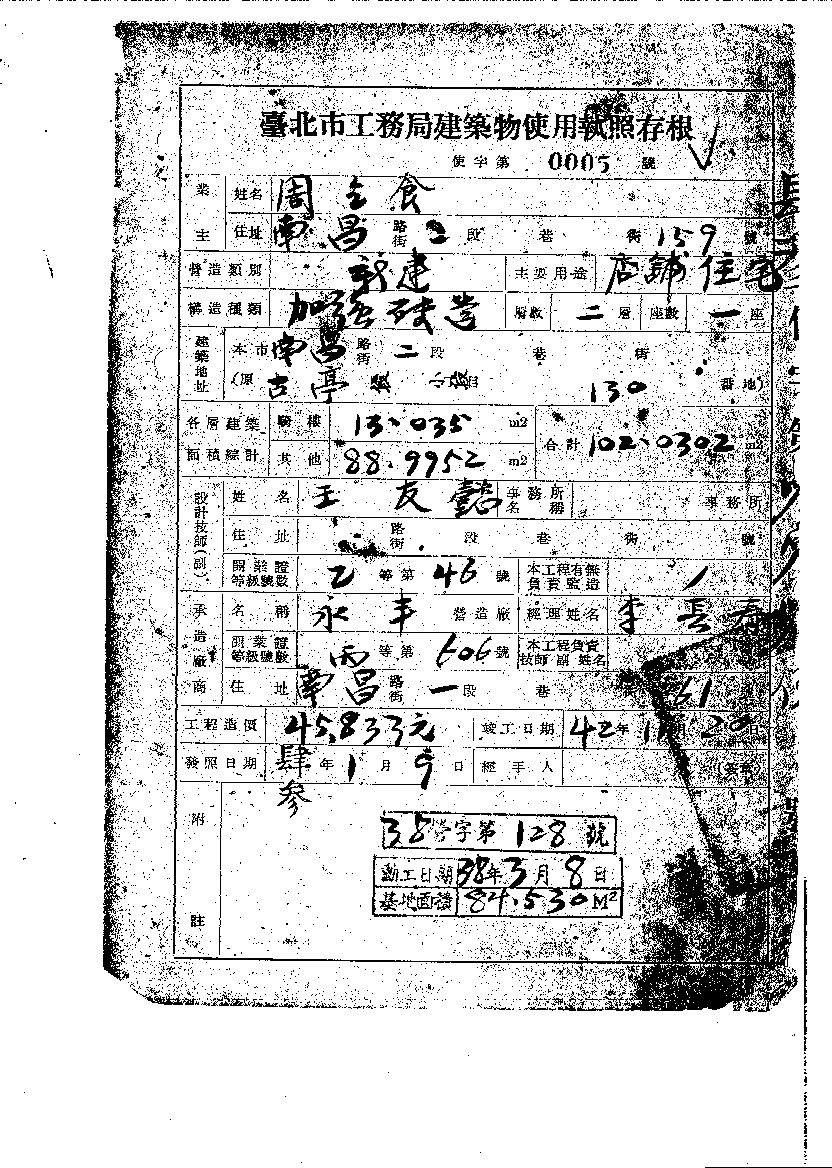 臺北市工務局建築物使用執照存根
使字第 0005 號
業主 姓名 周 食
住址 南昌 路街 二 段 巷 街 159 號
營造類別 新建 主要用途 店鋪住宅
構造種類 加強磚造 層數 二 層 座數 一 座
建築地址 本市 南昌 路街 二 段 巷 街
(原 古亭 130 番地)
各層建築面積綜計 騎樓 13.035 m2 合計 102.0302 m2
其他 88.9952 m2
設計技師(副) 姓名 王友 事務所名稱 事務所
住址 路街 段 巷 街 號
開業證等級號數 乙 等第 46 號 本工程有無負責監造
承造廠商 名稱 永丰 營造廠 經理姓名 李長壽
開業證等級號數 丙 等第 606 號 本工程負責技師副姓名
住址 南昌 路街 一 段 巷 街 31
工程造價 45,833元 竣工日期 42年 11月 20日
發照日期 肆參 年 1 月 9 日 經手人
附註
38營字第 128 號
動工日期 38年3月8日
基地面積 84.530M²